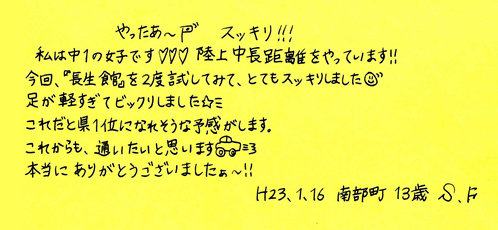 やったあ～ スッキリ!!!
私は中1の女子です♡♡♡ 陸上中長距離をやっています!!
今回、『長生館』を2度試してみて、とてもスッキリしました☺
足が軽すぎてビックリしました☆ミ
これだと県1位になれそうな予感がします。
これからも、通いたいと思います
本当にありがとうございましたぁ～!!
H23.1.16 南部町 13歳 S.F